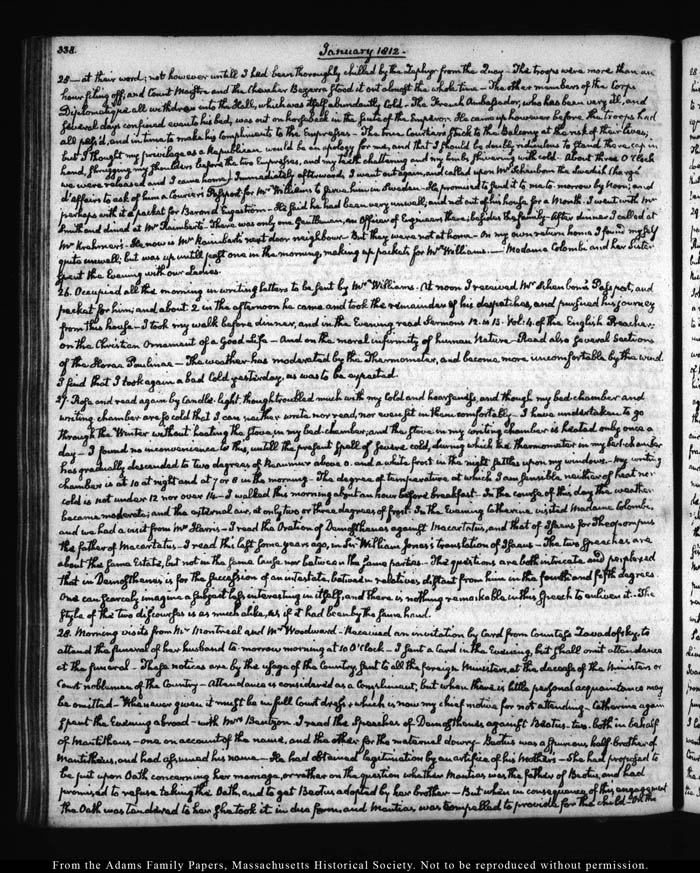 338.
January 1812.
25— at their word; not however untill I had been thoroughly chilled by the Zephyr from the Quay. The troops were more than an
hour filing off, and Count Maistre and the Chevalier Bezerra stood it out almost the whole time— The other members of the Corps
Diplomatique all withdrew into the Hall, which was itself abundantly cold. The French Ambassador, who has been very ill, and
several days confined even to his bed, was out on horseback in the suite of the Emperor. He came up however before the troops had
all pass'd, and in time to make his compliment to the Empresses— The true Courtiers stuck to the Balcony at the risk of their lives;
but I thought my privilege as a Republican would be an apology for me, and that I should be doubly ridiculous to stand there, cap in
hand, shrugging my shoulders before the two Empresses, and my teeth chattering and my limbs shivering with cold. About three O'Clock
we were released and I came home. Immediately afterwards I went out again, and called upon Mr Schenbom the Swedish Chargé
d'affaires to ask of him a Courier's Passport for Mr Williams to serve him in Sweden. He promised to send it to me to-morrow by Noon; and
perhaps with it a packet for Baron d'Engestrom. He said he had been very unwell, and not out of his house for a Month. I went with Mr
Smith and dined at Mr Raimbert's. There was only one Gentleman, an Officer of Engineers there, besides the family. After dinner I called at
Mr Krehmer's. He now is Mr Raimbert's next door neighbour. But they were not at home. On my own return home I found myself
quite unwell; but was up untill past one in the morning, making up packets for Mr Williams.— Madame Colombi and her Sister
spent the Evening with our Ladies.
26. Occupied all the morning in writing letters to be sent by Mr Williams. At noon I received Mr Schenbom's Passport, and
packet for him; and about 2 in the afternoon he came and took the remainder of his despatches, and pursued his journey
from this house. I took my walk before dinner, and in the Evening read Sermons 12. to 15. Vol: 4. of the English Preacher;
on the Christian Ornament of a Good Life— And on the moral infirmity of human Nature. Read also several Sections
of the Horae Paulinae— The weather has moderated by the Thermometer, and become more uncomfortable by the wind.
I find that I took again a bad cold yesterday, as was to be expected.
27. Rose and read again by Candle-light, though troubled much with my cold and hoarseness, and though my bed-chamber and
writing chamber are so cold that I can neither write nor read, nor even sit in them comfortably. I have undertaken to go
through the Winter without heating the stove in my bed-chamber; and the stove in my writing Chamber is heated only once a
day— I found no inconvenience to this, untill the present spell of severe cold, during which the thermometer in my bed-chamber
has gradually descended to two degrees of Reaumur above 0. and a white frost in the night settles upon my windows. My writing
chamber is at 10 at night and at 7 or 8 in the morning. The degree of temperature at which I am sensible neither of heat nor
cold is not under 12 nor over 14— I walked this morning about an hour before breakfast. In the course of this day the weather
became moderate; and the external air, at only two or three degrees of frost. In the Evening Catherine visited Madame Colombi,
and we had a visit from Mr Harris— I read the Oration of Demosthenes against Macartatus, and that of Isaeus for Theopompus
the father of Macartatus— I read this last some years ago, in Sir William Jones's translation of Isaeus— The two speeches are
about the same Estate, but not in the same Cause nor between the same parties— The questions are both intricate and perplexed
that in Demosthenes is for the succession of an intestate, between relatives distant from him in the fourth and fifth degrees.
One can scarcely imagine a subject less interesting in itself, and there is nothing remarkable in this Speech to enliven it— The
style of the two discourses is as much alike, as if it had been by the same hand.
28. Morning visits from Mr Montreal and Mr Woodward. Received an invitation by Card from Countess Zavadofsky, to
attend the funeral of her husband to-morrow morning at 10 O'Clock— I sent a Card in the Evening, but shall omit attendance
at the funeral— These notices are by the usage of the Country, sent to all the foreign Ministers, at the decease of the Ministers or
Court noblemen of the Country— Attendance is considered as a Compliment, but when there is little personal acquaintance may
be omitted— Whenever given it must be in full Court dress, which is now my chief motive for not attending. Catherine again
spent the Evening abroad— with Mrs Bentzon. I read the Speeches of Demosthenes against Beotus— two— both in behalf
of Mantitheus— one on account of the name, and the other for the maternal dowry— Beotus was a spurious half-brother of
Mantitheus, and had assumed his name— He had obtained legitimation by an artifice of his Mother's— She had proposed to
be put upon Oath concerning her marriage, or rather on the question whether Mantias was the father of Beotus, and had
promised to refuse taking the Oath, and to get Beotus adopted by her brother— But when in consequence of this engagement
the Oath was tendered to her she took it in due form, and Mantias was compelled to provide for the child. On the
From the Adams Family Papers, Massachusetts Historical Society. Not to be reproduced without permission.